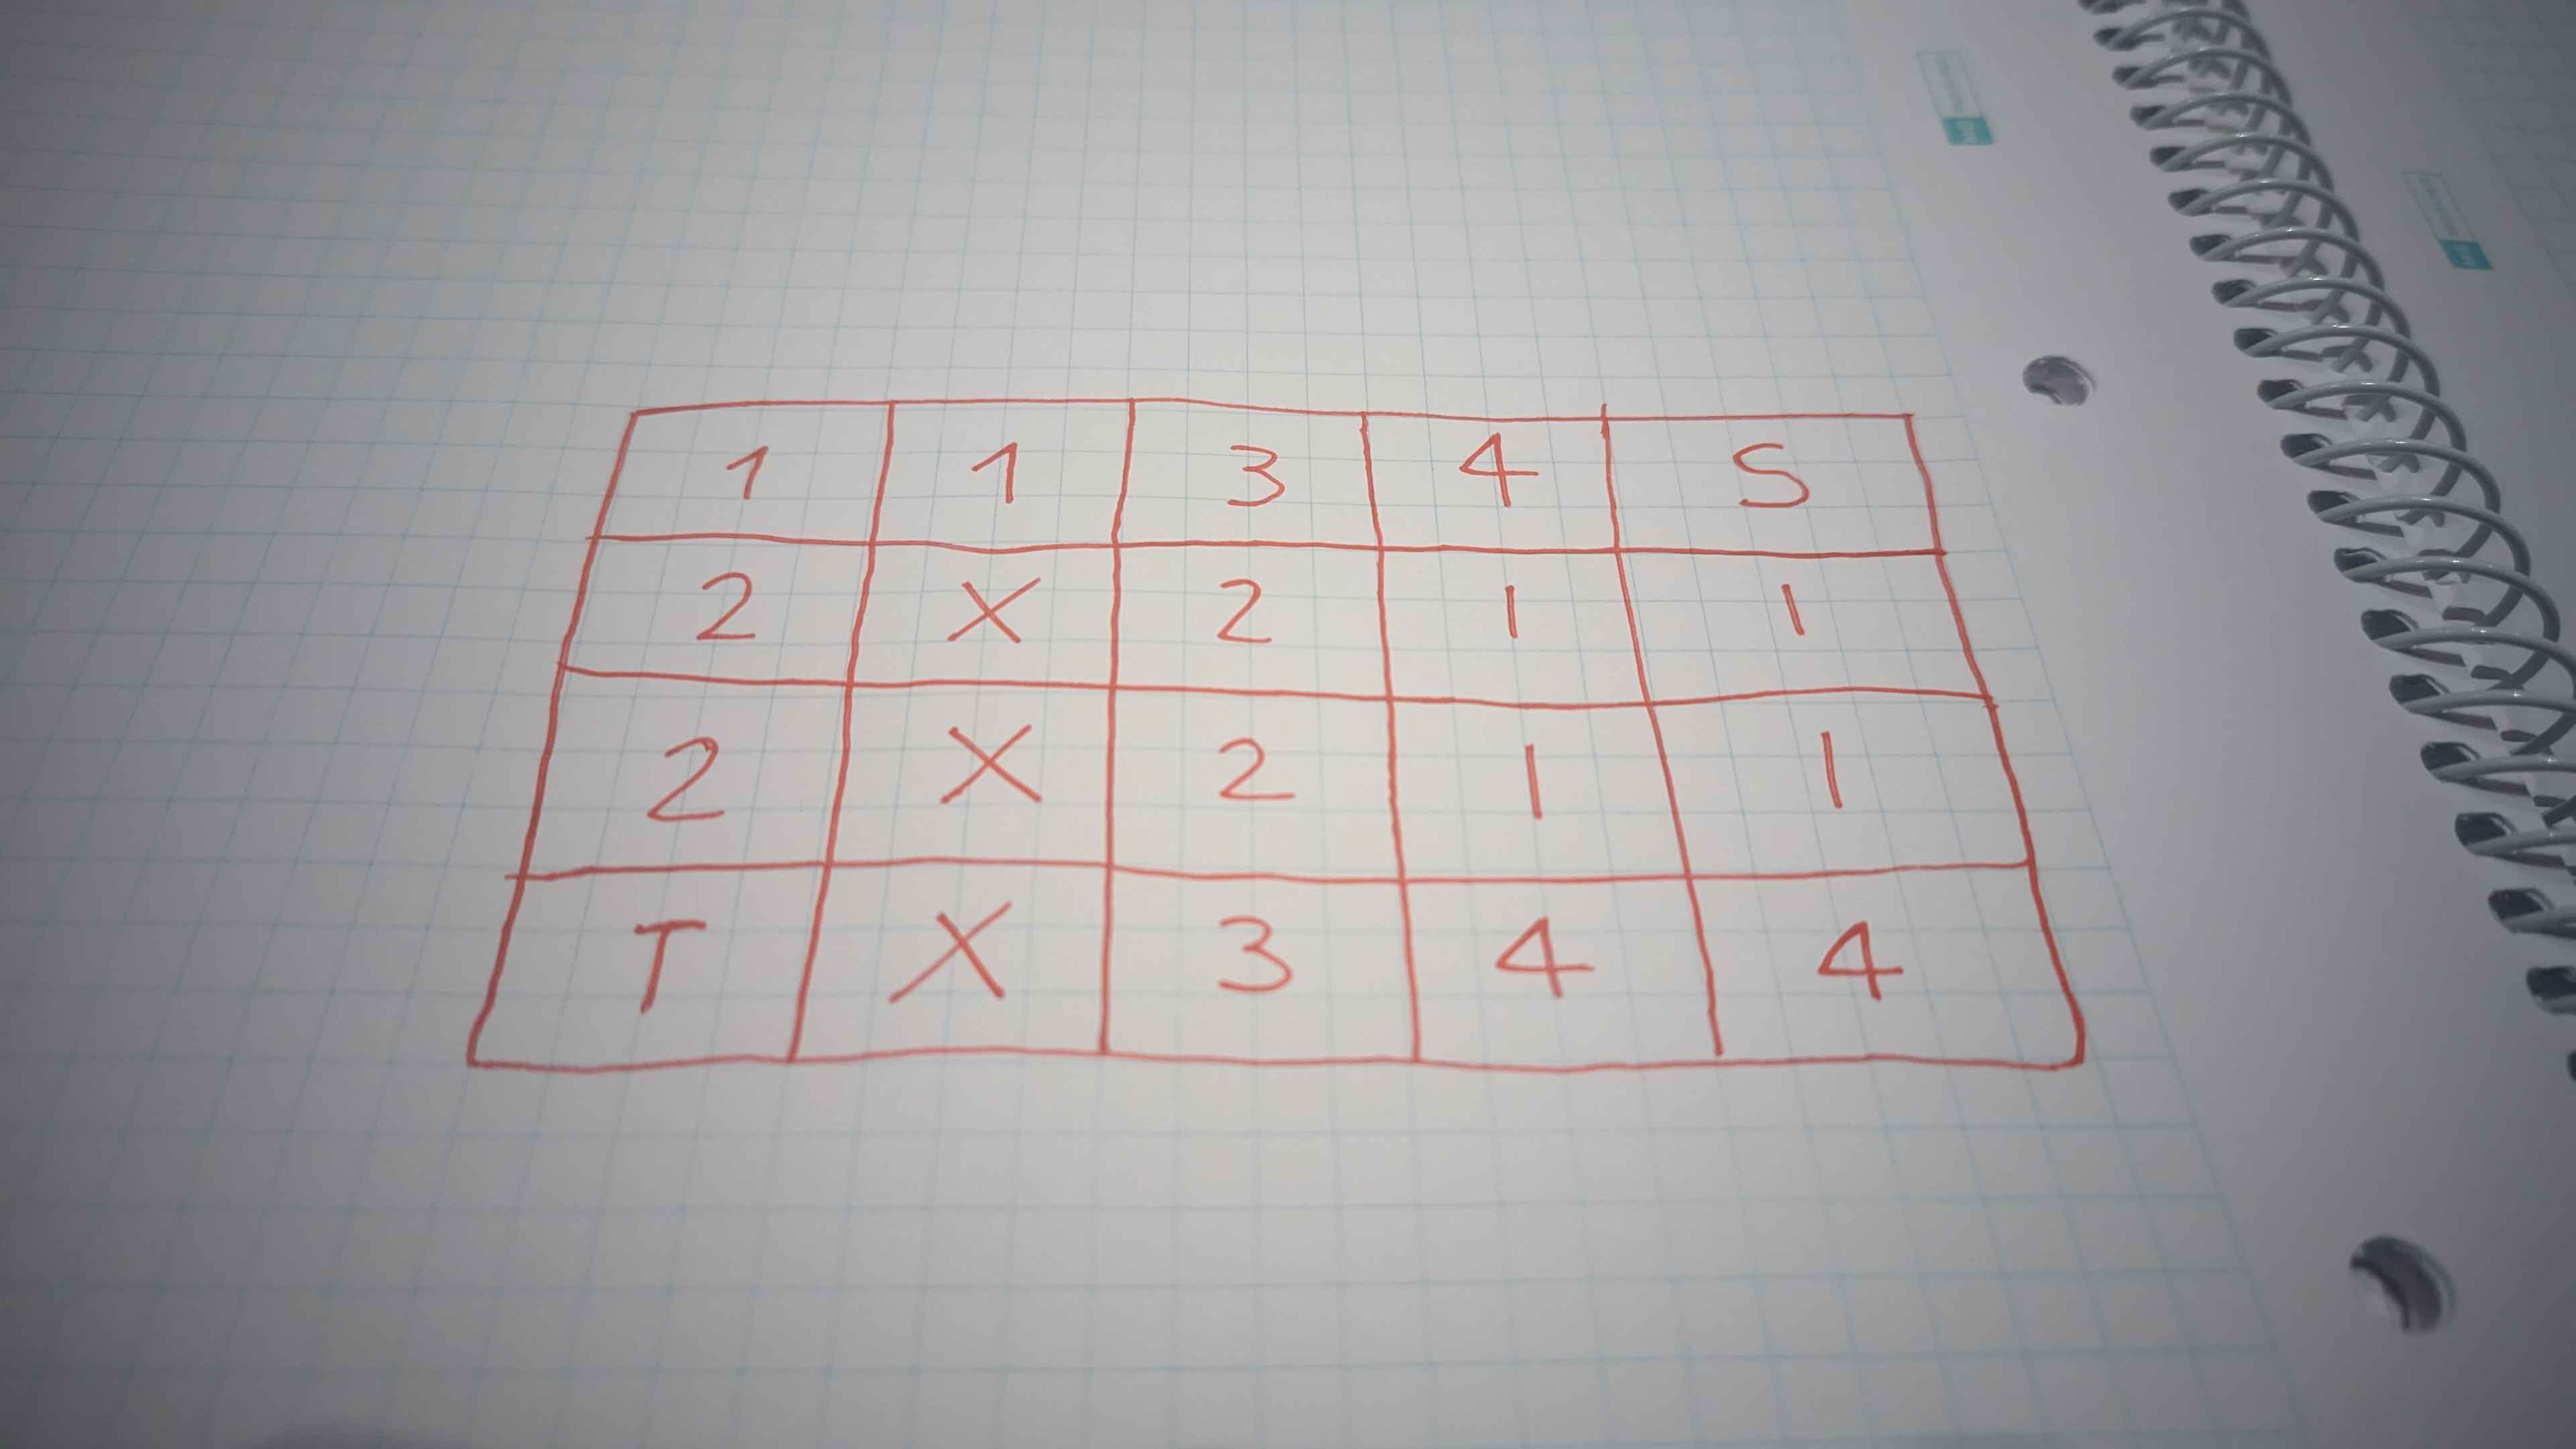 1 1 3 4 5
2 X 2 1 1
2 X 2 1 1
T X 3 4 4